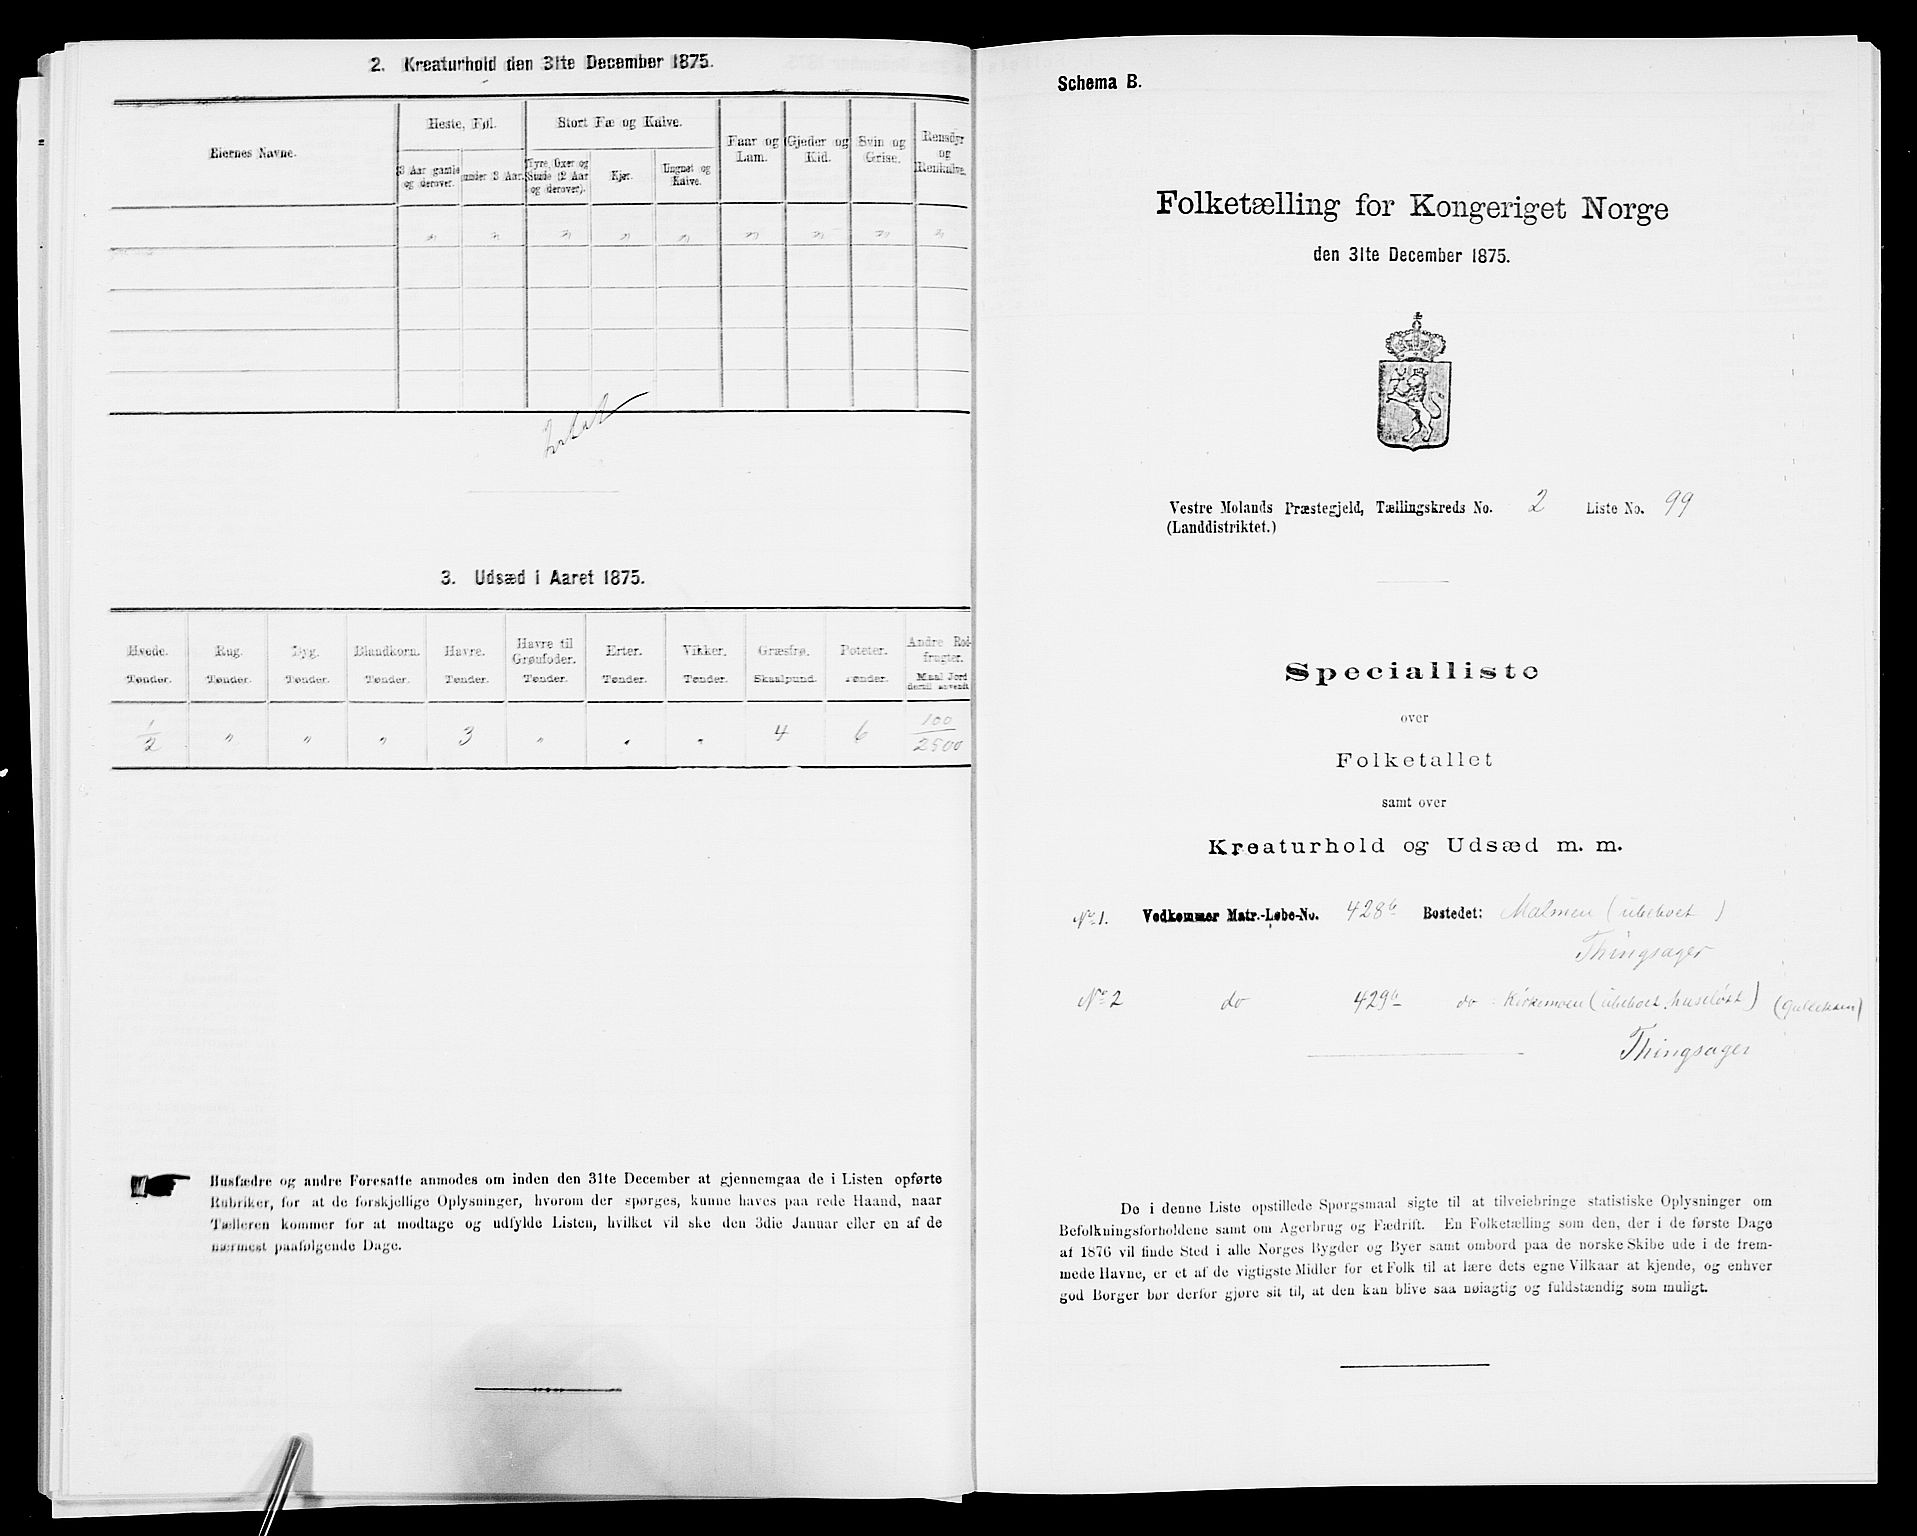 2. Kreaturhold den 31te December 1875.
Eiernes Navne.
Heste, Føl.
3 Aar gamle og derover.
under 3 Aar.
Stort Fæ og Kalve.
Tyre, Oxer og Stude (2 Aar og derover).
Kjør.
Ungnøt og Kalve.
Faar og Lam.
Gjeder og Kid.
Svin og Grise.
Rensdyr og Renkalve.
" " " " " " " " "
3. Udsæd i Aaret 1875.
Hvede. Rug. Byg. Blandkorn. Havre. Havre til Grønfoder. Erter. Vikker. Græsfrø. Poteter. Andre Rodfrugter.
Tønder. Tønder. Tønder. Tønder. Tønder. Tønder. Tønder. Tønder. Skaalpund. Tønder. Maal Jord dertil anvendt
1/2 " " " 3 " " " 4 6 100/2500
Husfædre og andre Foresatte anmodes om inden den 31te December at gjennemgaa de i Listen opførte
Rubriker, for at de forskjellige Oplysninger, hvorom der spørges, kunne haves paa rede Haand, naar
Tælleren kommer for at modtage og udfylde Listen, hvilket vil ske den 3die Januar eller en af de
nærmest paafølgende Dage.
Schema B.
Folketælling for Kongeriget Norge
den 31te December 1875.
Vestre Molands Præstegjeld, Tællingskreds No. 2 Liste No. 99
(Landdistriktet.)
Specialliste
over
Folketallet
samt over
Kreaturhold og Udsæd m. m.
No 1. Vedkommer Matr.-Løbe-No. 428b Bostedet: Malmen (ubeboet)
Thingsager
No 2 do 429b do Kirkemoen (ubeboet, huseløst)
Thingsager
De i denne Liste opstillede Spørgsmaal sigte til at tilveiebringe statistiske Oplysninger om
Befolkningsforholdene samt om Agerbrug og Fædrift. En Folketælling som den, der i de første Dage
af 1876 vil finde Sted i alle Norges Bygder og Byer samt ombord paa de norske Skibe ude i de frem-
mede Havne, er et af de vigtigste Midler for et Folk til at lære dets egne Vilkaar at kjende, og enhver
god Borger bør derfor gjøre sit til, at den kan blive saa nøiagtig og fuldstændig som muligt.